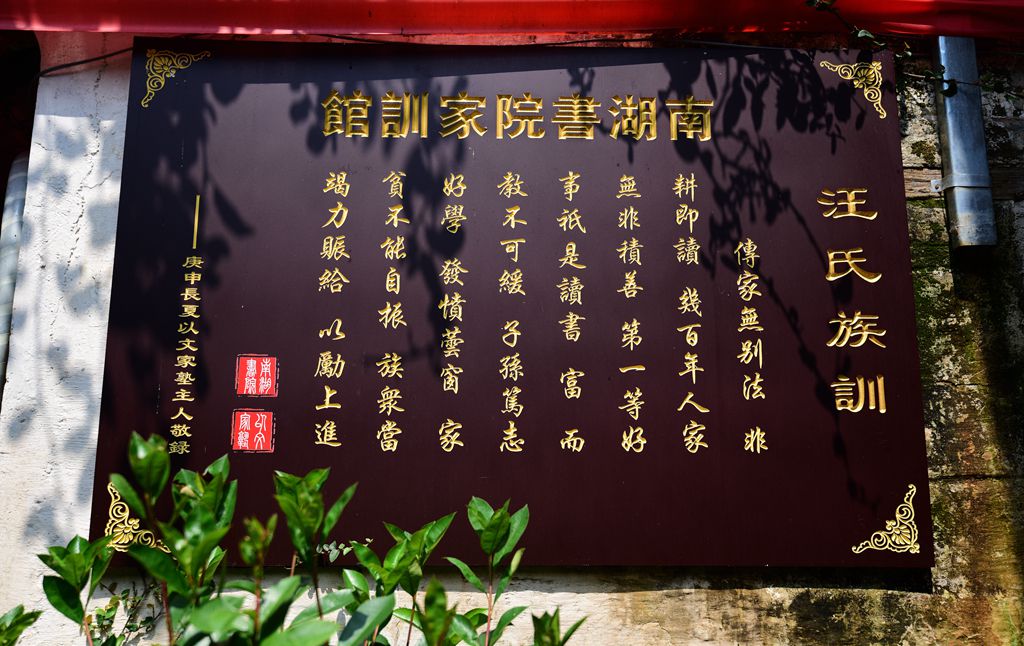 南湖書院家訓館
汪氏族訓
傳家無別法 非
耕即讀 幾百年人家
無非積善 第一等好
事祇是讀書 富 而
教不可緩 子孫篤志
好學 發憤蕓窗 家
貧不能自振 族衆當
竭力賑給 以勵上進
庚申長夏以文家塾主人敬錄
南湖書院
以文家塾